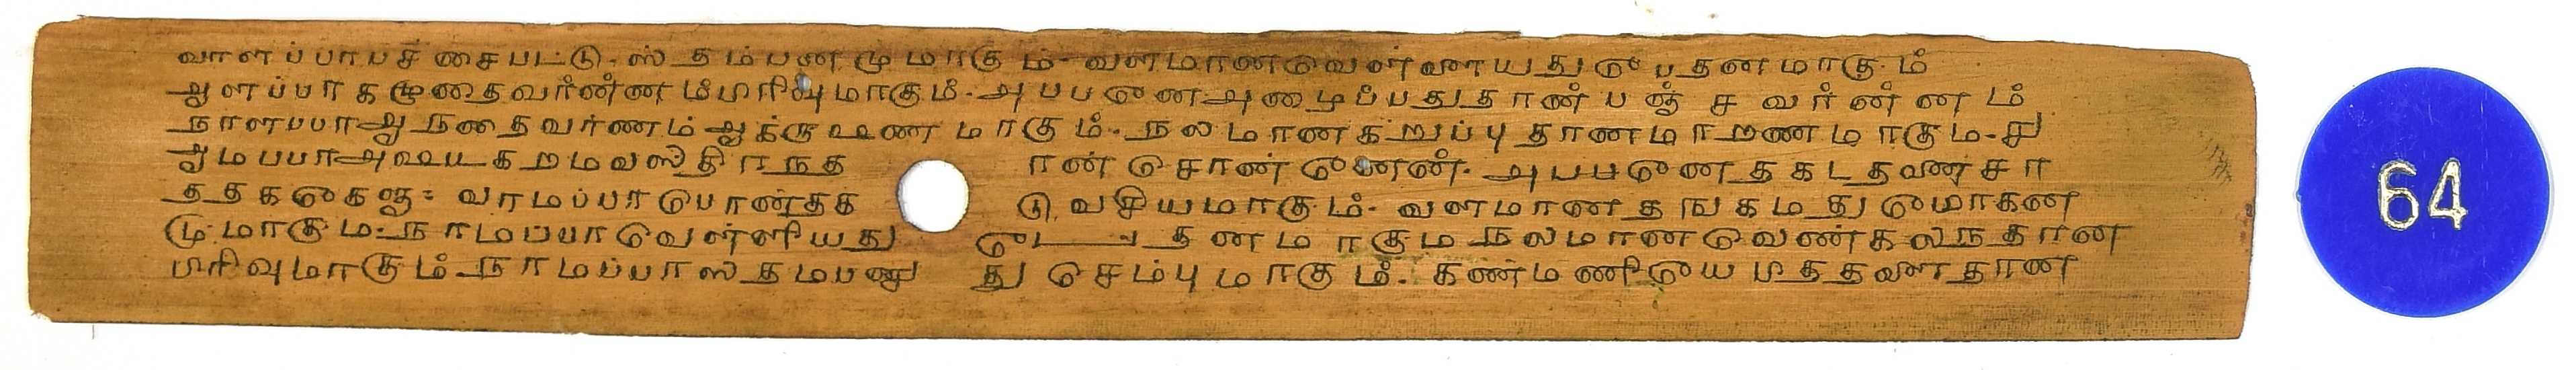 வாளப்பாபச்சைபட்டு. ஸ்தம்பனமுமாகும்- வளமானவெள்ளையதுபேதனமாகும்
ஆளப்பாகழுதைவர்ண்ணம்பிரிவுமாகும்- அபபனெஅழைப்பதுதான்பஞ்சவர்ண்ணம்
நாளபபாஆந்தைவர்ணம்ஆக்ருஷணமாகும்- நலமானகறுப்புதானமாறணமாகும-சு
ஆமபபாஅஷயகறமவஸ்திரந்த ரண்
வாமப்பாபொன்தக டுவசியமாகும்- வளமானதஙகமதுமொகன
முமாகும- நாமப்பாவெள்ளியது தனமாகுமநலமானவெண்கலநதான
பிரிவுமாகும்நாமப்பாஸ்தமபன துசெம்புமாகும்- கண்மணியெ
64